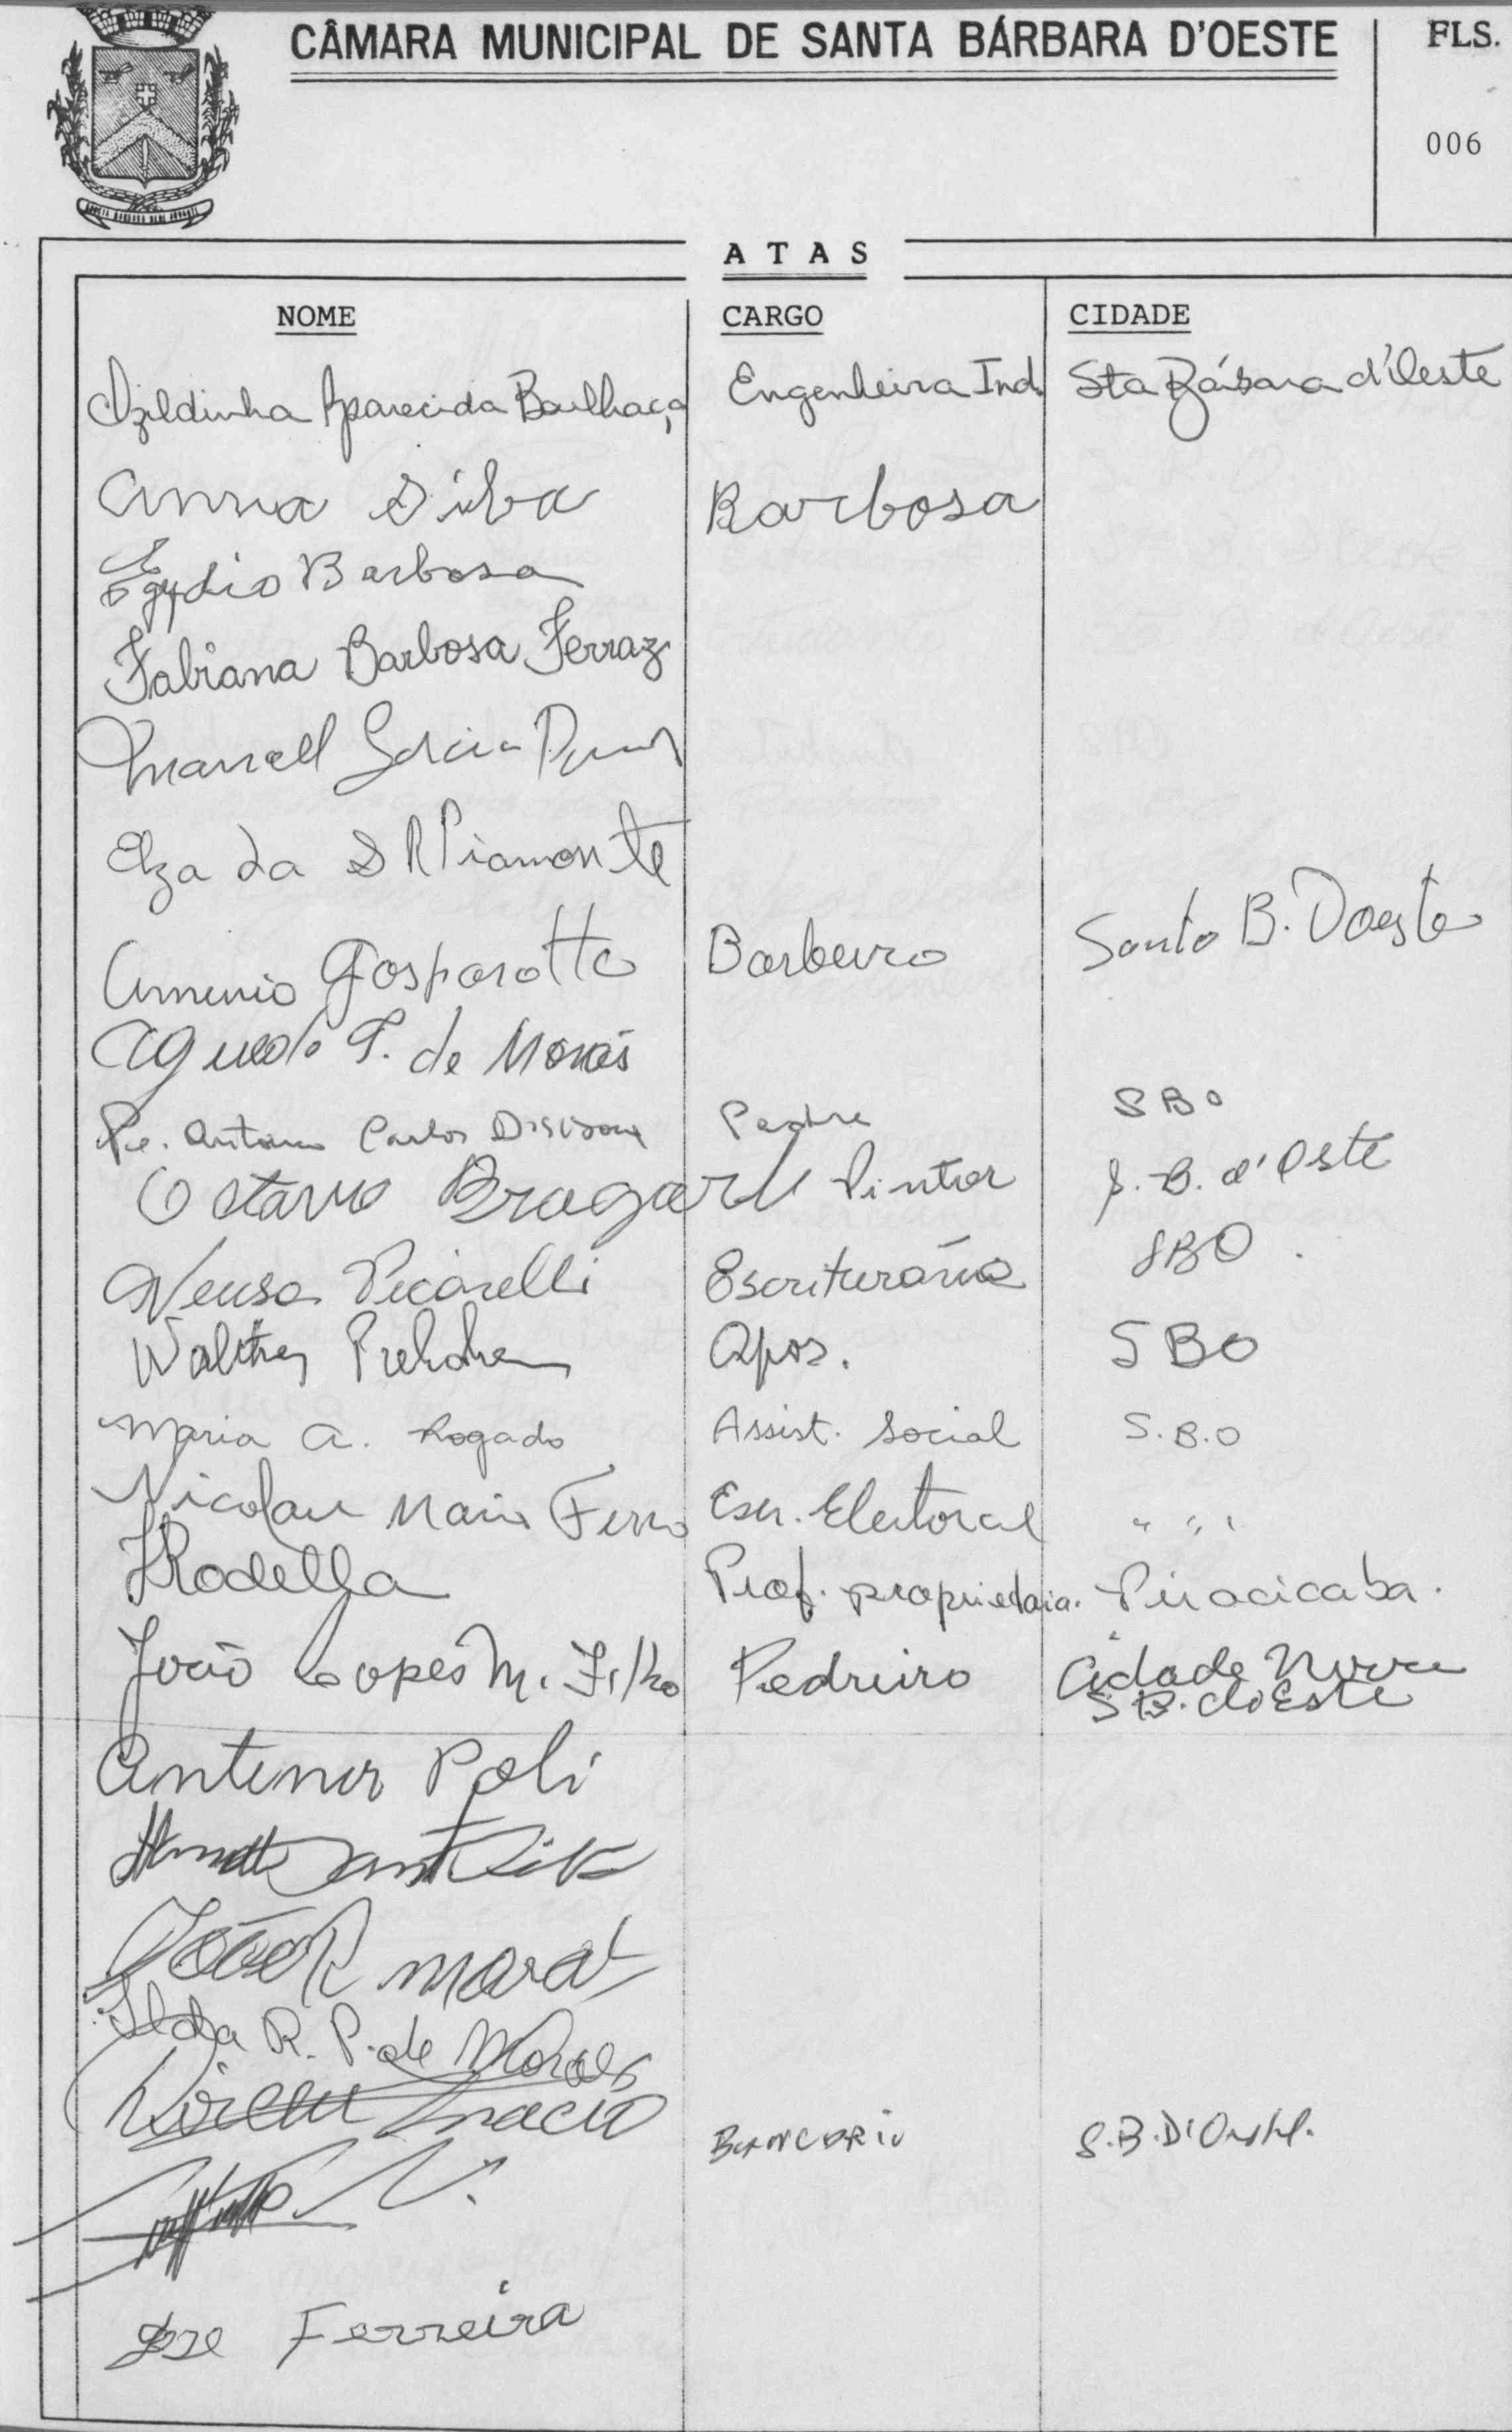 CÂMARA MUNICIPAL DE SANTA BÁRBARA D'OESTE
FLS.
006
A T A S
NOME CARGO CIDADE
Izildinha Aparecida Engenheira Ind. Sta Bárbara d'Oeste
Anna Silva Barbosa
Egydio Barbosa
Fabiana Barbosa Ferraz
Garcia
Elza da S R Piamonte
Gosparotto Barbeiro Santo B. Doeste
T. de Morais
Pe. Antonio Carlos Padre SBO
Octavio Pintor S. B. d'Oste
Neusa Picarelli Escriturária SBO
Walther Apos. SBO
Maria A. Rogado Assist. Social S.B.O
Nicolau Ferro Escr. Eleitoral " " "
Rodella Prof. proprietaia. Piracicaba.
João Lopes M. Filho Pedreiro Cidade Nova
S B. doEste
Antenor Poli
João R
Ilda R. P. de Moraes
Dirceu Inacio
BANCARIO S.B.D'Oeste.
Jose Ferreira